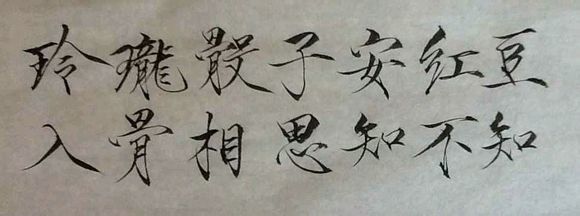 玲瓏骰子安红豆
入骨相思知不知